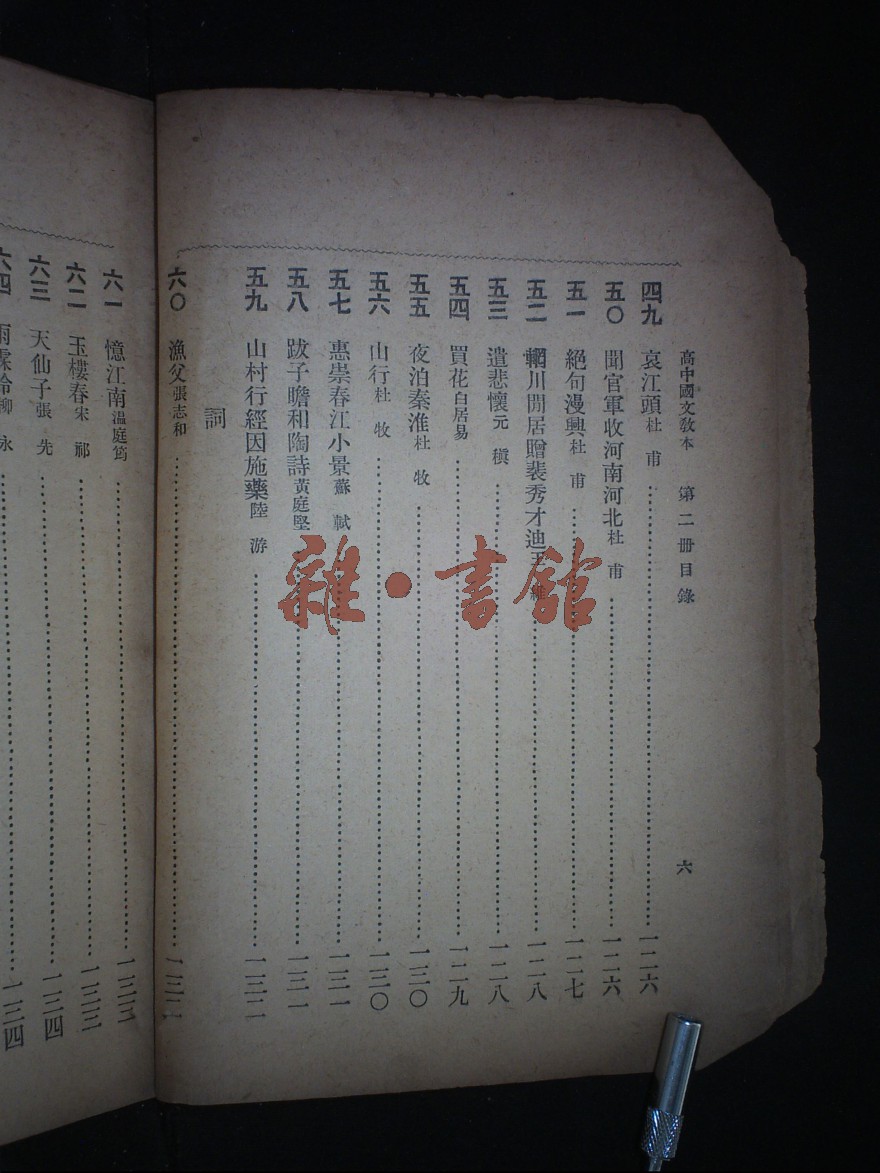 高中國文教本 第二冊目錄 六
四九 哀江頭 杜甫 一二六
五〇 聞官軍收河南河北 杜甫 一二六
五一 絕句漫興 杜甫 一二七
五二 輞川閒居贈裴秀才迪 王維 一二八
五三 遣悲懷 元稹 一二八
五四 買花 白居易 一二九
五五 夜泊秦淮 杜牧 一三〇
五六 山行 杜牧 一三〇
五七 惠崇春江小景 蘇軾 一三一
五八 跋子瞻和陶詩 黃庭堅 一三一
五九 山村行經因施藥 陸游 一三二
詞
六〇 漁父 張志和 一三二
六一 憶江南 溫庭筠 一三三
六二 玉樓春 宋祁 一三三
六三 天仙子 張先 一三四
六四 雨霖鈴 柳永 一三四
雜·書館